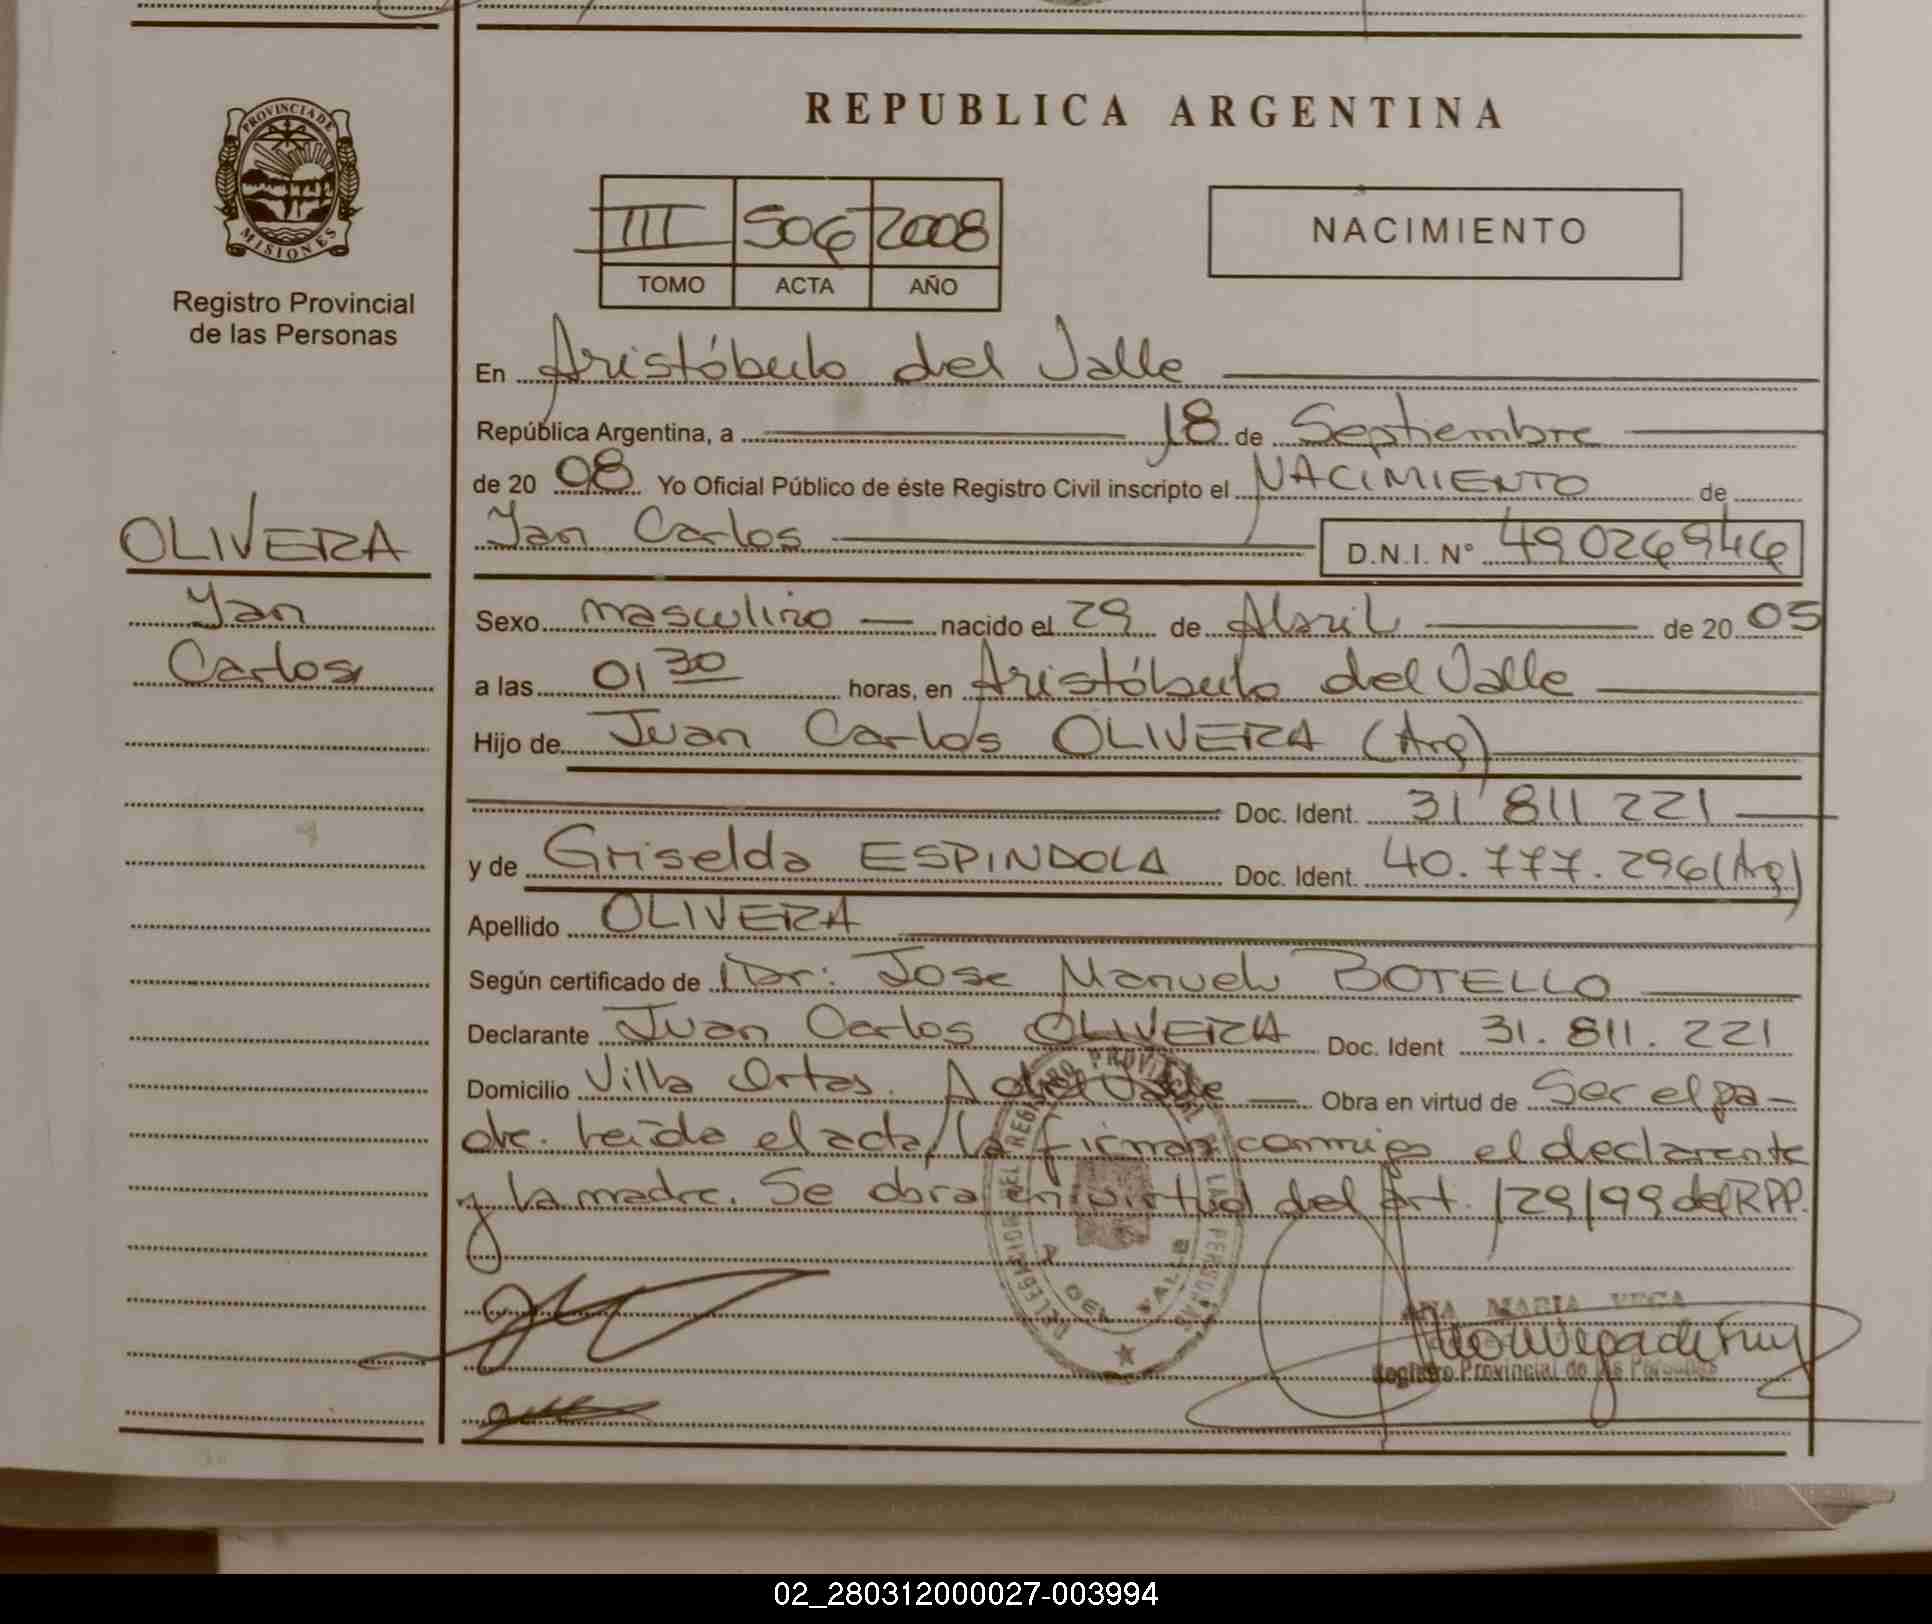 REPUBLICA ARGENTINA
PROVINCIA DE
MISIONES
Registro Provincial
de las Personas
III 506 2008
TOMO ACTA AÑO
NACIMIENTO
En Aristóbulo del Valle
República Argentina, a 18 de Septiembre
de 20 08 Yo Oficial Público de éste Registro Civil inscripto el NACIMIENTO de
Yan Carlos D.N.I. N° 49026946
OLIVERA
Yan
Carlos
Sexo masculino nacido el 29 de Abril de 20 05
a las 01 30 horas, en Aristóbulo del Valle
Hijo de Juan Carlos OLIVERA (Arg)
Doc. Ident. 31 811 221
y de Griselda ESPINDOLA Doc. Ident. 40.777.296 (Arg)
Apellido OLIVERA
Según certificado de Dr: Jose Manuel BOTELLO
Declarante Juan Carlos OLIVERA Doc. Ident 31.811.221
Domicilio Villa Ortas. A del Valle Obra en virtud de Ser el pa-
dre. Leida el acta, la firman conmigo el declarante
y la madre. Se obra en virtud del art. 129/99 del RPP.
DELEGACION DEL REGISTRO PROVINCIAL DE LAS PERSONAS
A DEL VALLE
ANA MARIA VEGA
Registro Provincial de las Personas
02_280312000027-003994